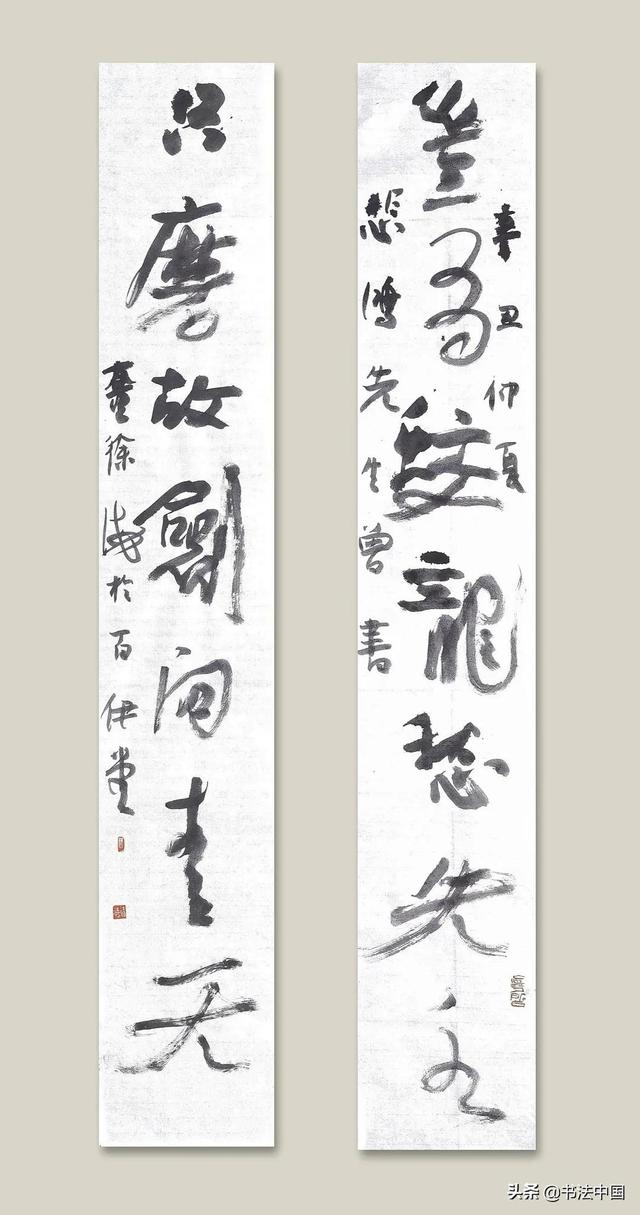 豈為蛟龍愁失
辛丑仲夏
悲鴻先生曾書
只磨故劍問青天
徐於百伊堂
头条 @书法中国